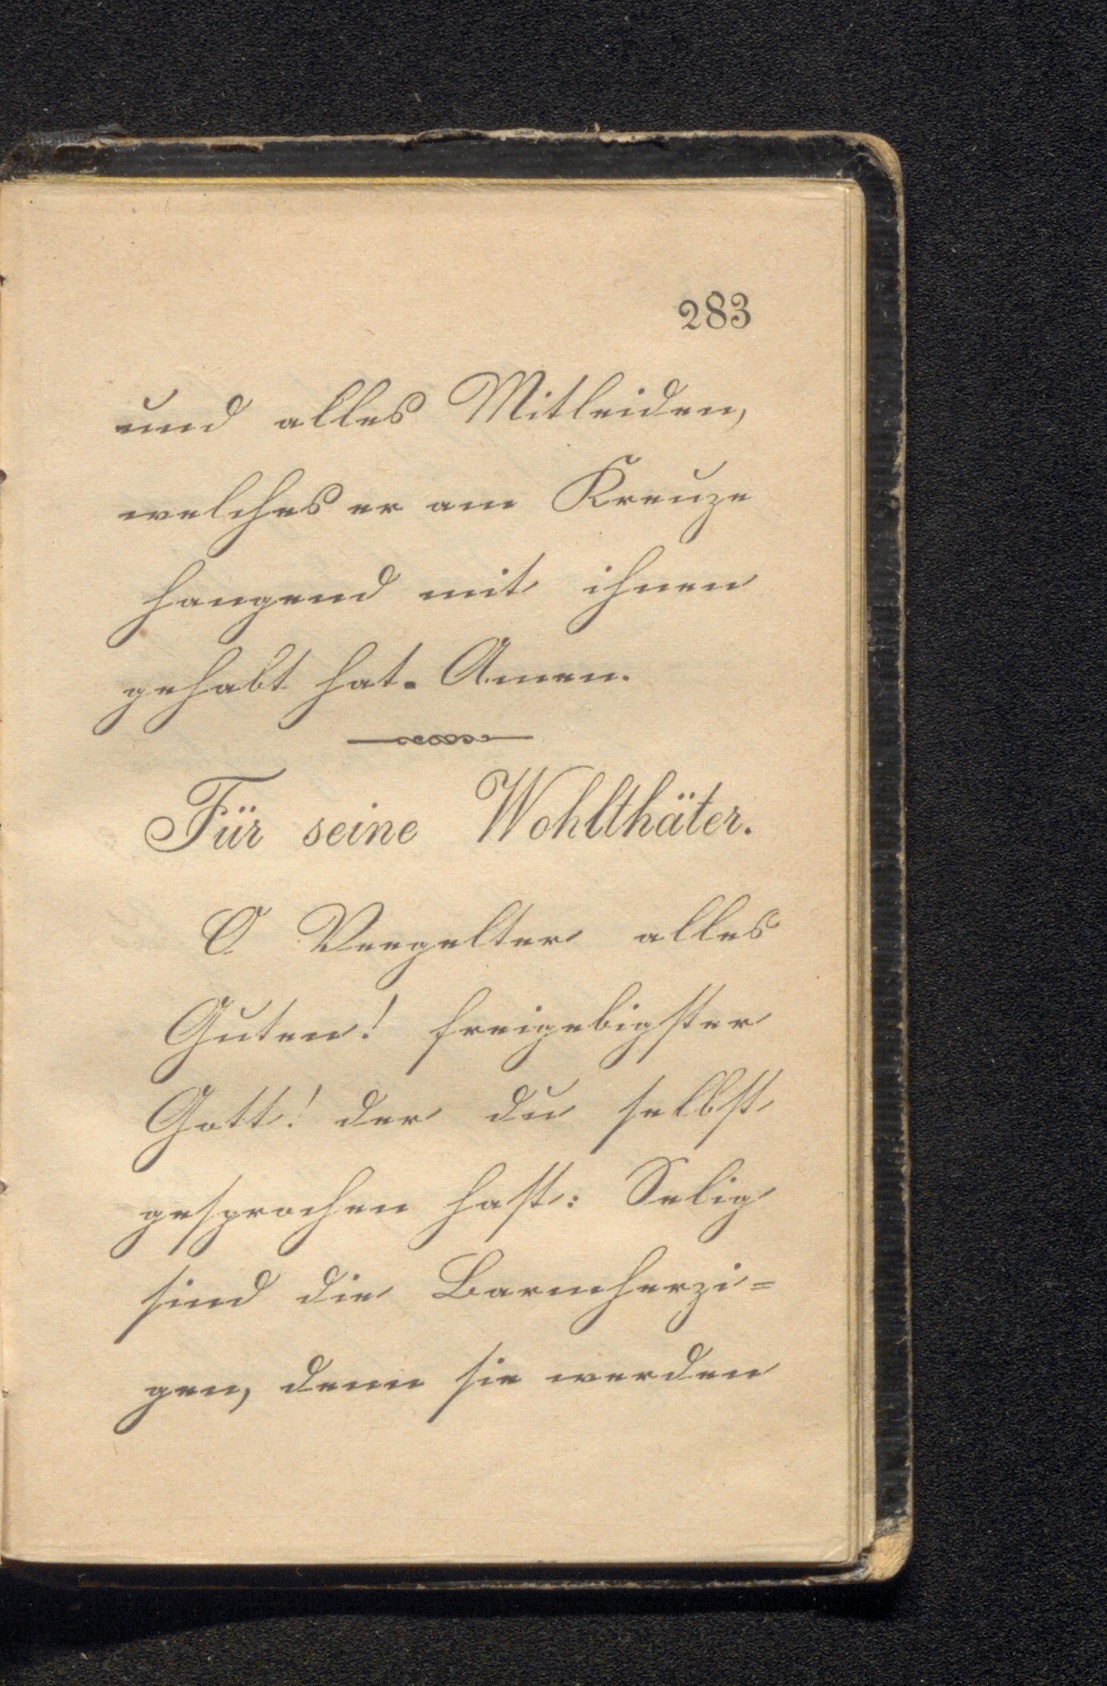 283
und alles Mitleiden,
welches er am Kreuze
hangend mit ihnen
gehabt hat. Amen.
Für seine Wohlthäter.
O Vergelter alles
Guten! freigebigster
Gott! der du selbst
gesprochen hast: Selig
sind die Barmherzi=
gen, denn sie werden